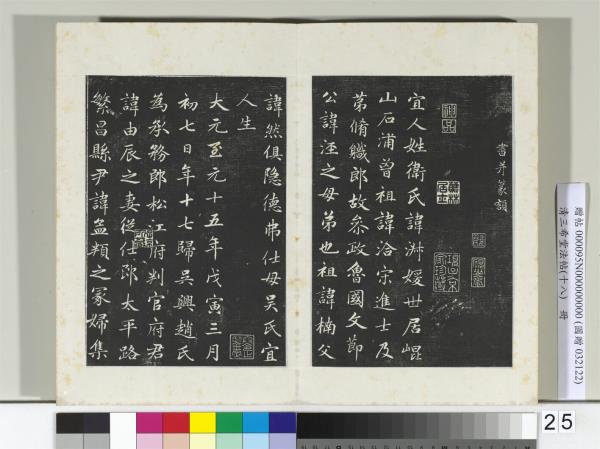 書并篆額
宜人姓衛氏諱淑媛世居崐
山石浦曾祖諱洽宗進士及
第脩職郎故叅政魯國文節
公諱涇之母弟也祖諱楠父
諱然俱隐德弗仕母吴氏宜
人生
大元至元十五年戊寅三月
初七日年十七歸吳興趙氏
為承務郎松江府判官府君
諱由辰之妻從仕郎太平路
繁昌縣尹諱孟頖之冢婦集
贈帖 000095N000000000 (國贈 032122)
清三希堂法帖(十八) 冊
25